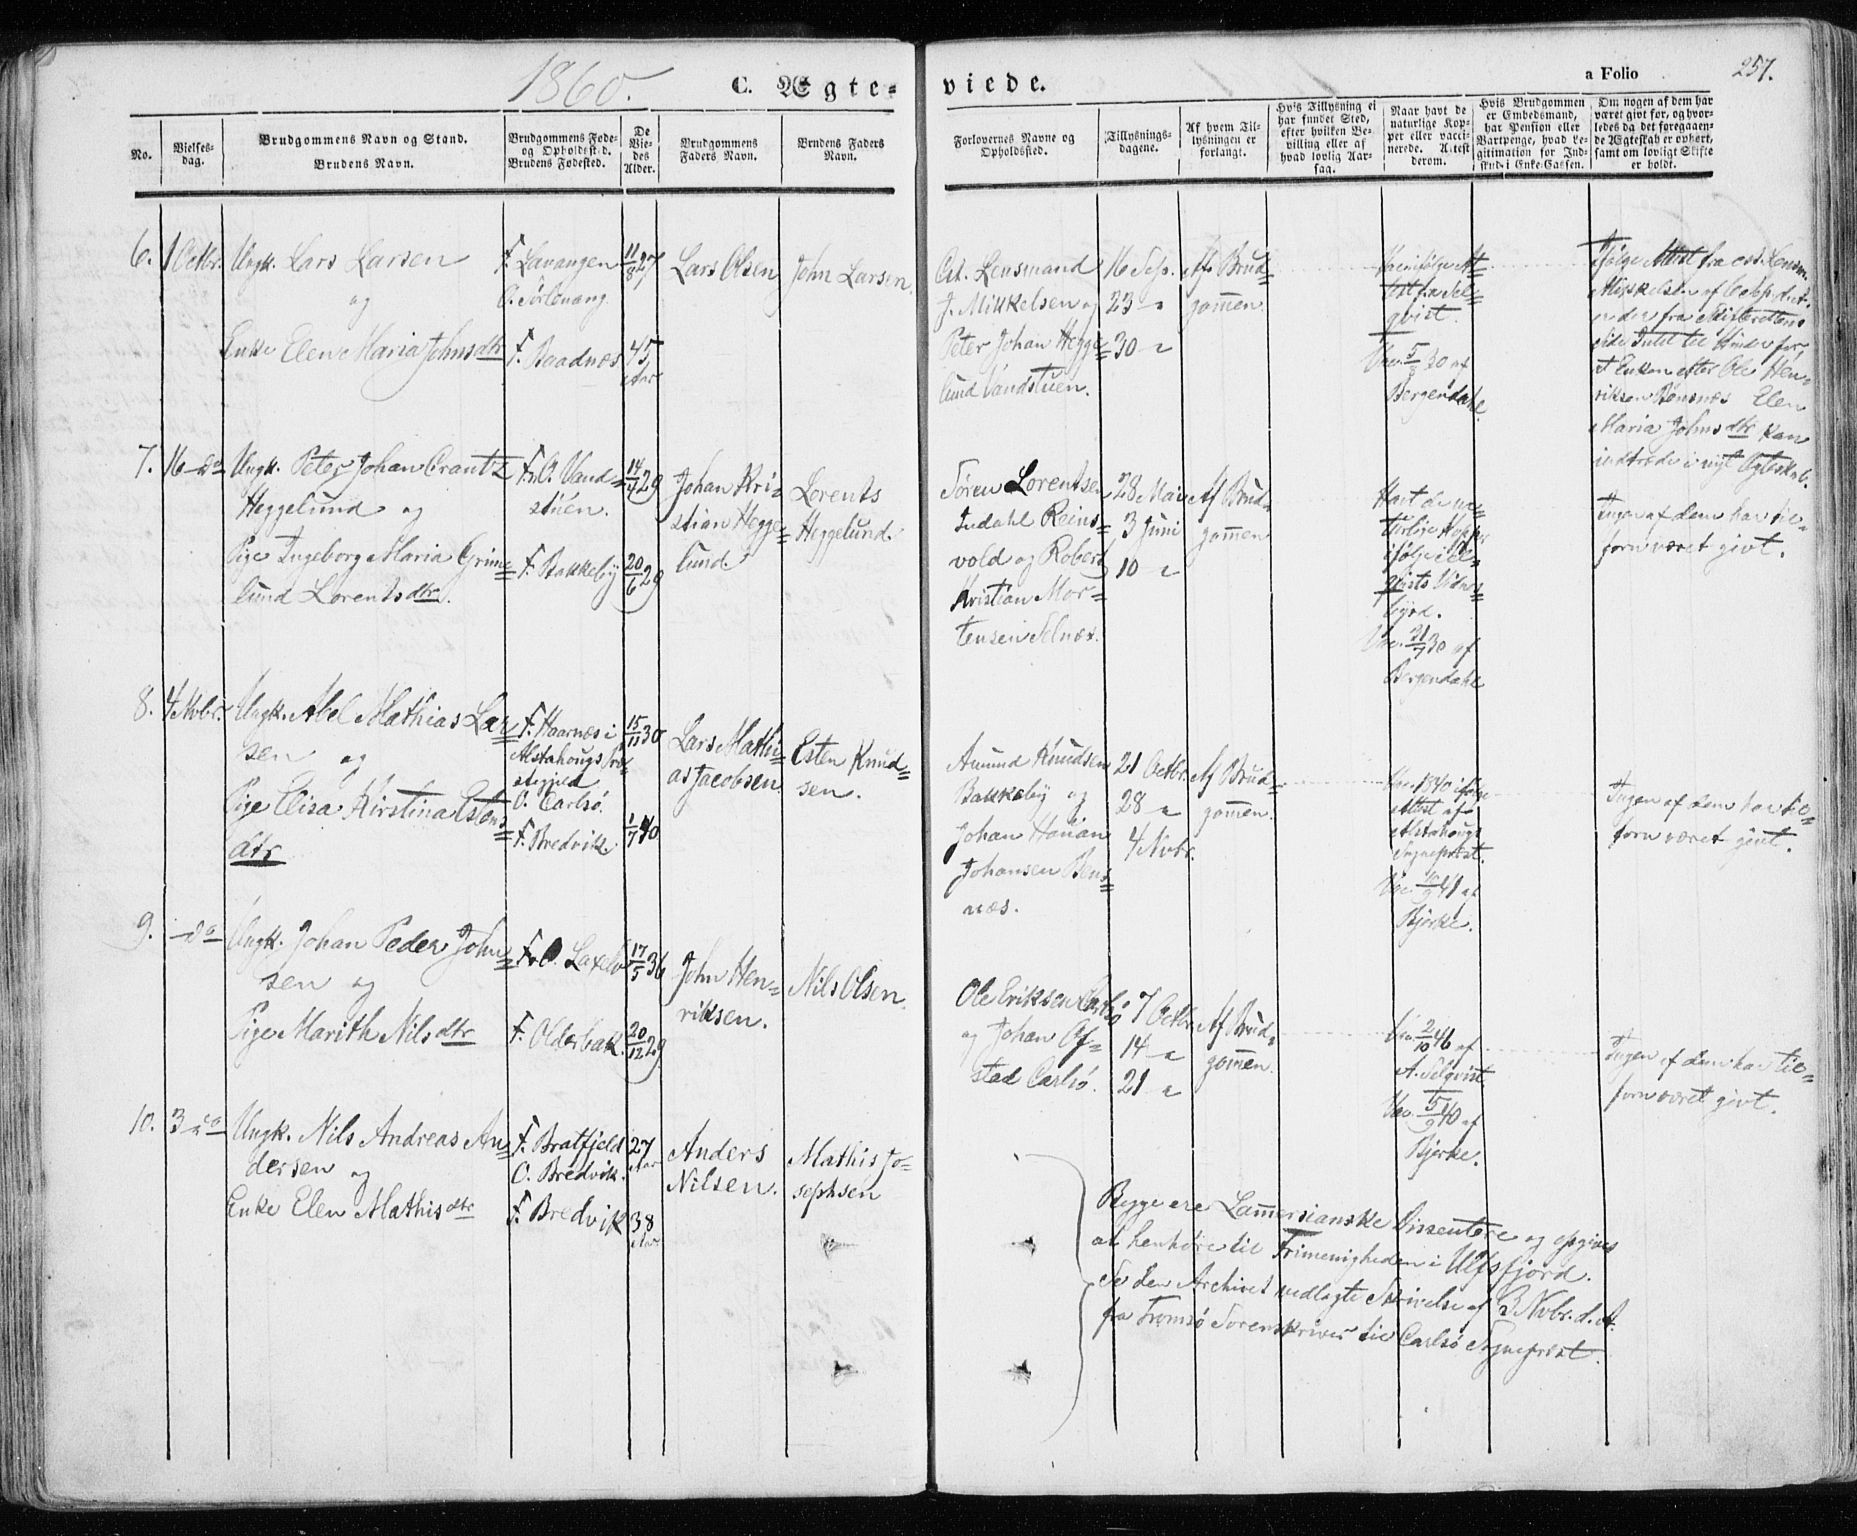 1860.
C. Ægte-
viede.
a Folio
257.
No.
Vielses-
dag.
Brudgommens Navn og Stand.
Brudens Navn.
Brudgommens Føde-
og Opholdssted.
Brudens Fødested.
De
Vie-
des
Alder.
Brudgommens
Faders Navn.
Brudens Faders
Navn.
Forlovernes Navne og
Opholdssted.
Tillysnings-
dagene.
Af hvem Til-
lysningen er
forlangt.
Hvis Tillysning ei
har fundet Sted,
efter hvilken Be-
villing eller af
hvad lovlig Aar-
sag.
Naar havt de
naturlige Kop-
per eller vacci-
nerede. Attest
derom.
Hvis Brudgommen
er Embedsmand,
har Pension eller
Vartpenge, hvad Le-
gitimation for Ind-
skud i Enke-Cassen.
Om nogen af dem har
været givt før, og hvor-
ledes da det foregaaen-
de Ægteskab er ophørt,
samt om lovligt Skifte
er holdt.
6. 1 Octbr.
Ungk. Lars Larsen
og
Enke Elen Maria Johnsdtr
F. Lavangen
O. Sørlenang
F. Baadnæs
11/8 27
45
Aar
Lars Olsen
John Larsen
Cst. Lensmand
J. Mikkelsen og
Peter Johan Hegge=
lund Vandstuen.
16 Sep.
23 "
30 "
Af Brud=
gommen.
Vac. ifølge At=
test fra Sel=
qvist.
Vac. 5/8 30 af
Bergendahl
Ifølge Attest fra cst. Lensm.
Mikkelsen af
er der fra Skifterettens
Side Intet til Hinder for,
at Enken efter Ole Hen=
riksen Bensnæs Elen
Maria Johnsdtr kan
indtræde i nyt Ægteskab.
7. 16 do
Ungk. Peter Johan Crantz
Heggelund og
Pige Ingeborg Maria Grøne=
lund Lorentsdtr.
F. O. Vand=
stuen.
F. Bakkeby
14/4 29
20/6 29
Johan Kri=
stian Hegge=
lund.
Lorents
Heggelund.
Søren Lorentsen
Indahl Reins=
vold og Robert
Kristian Mor=
tensen Selnæs.
28 Mai
3 Juni
10 "
Af Brud=
gommen
Havt de na=
turlige Kopper
ifølge Sel=
qvists Vidnes=
byrd.
Vac. 31/7 30 af
Bergendahl
Ingen af dem har til=
forn været givt.
8. 4 Nvbr.
Ungk. Abel Mathias Lar=
sen og
Pige Elisa Kirstina Estens=
dtr
F. Haarnæs i
Alstahougs Præ=
stegjeld
O. Carlsø.
F. Bredvik.
15/11 30
1/7 40
Lars Mathi=
as Jacobsen
Esten Knud=
sen.
Amund Knudsen
Bakkeby og
Johan Hanian
Johansen Bens=
næs.
21 Octbr.
28 "
4 Nvbr.
Af Brud=
gommen.
Vac. 1840 ifølge
Attest af
Alstahougs
Sognepræst.
Vac. 10/9 41 af
Bjerke.
Ingen af dem har til=
forn været givt.
9. do
Ungk. Johan Peder John=
sen og
Pige Marith Nilsdtr
F. O. Laxelv
F. Olderbak.
17/5 36
20/12 29
John Hen=
riksen.
Nils Olsen.
Ole Eriksen Carlsø
og Johan Of=
stad Carlsø.
7 Octbr.
14 "
21 "
Af Brud=
gommen.
Vac. 2/10 46 af
A. Selqvist
Vac. 5/9 40 af
Bjerke.
Ingen af dem har til=
forn været givt.
10. 3 do
Ungk. Nils Andreas An=
dersen og
Enke Elen Mathisdtr
F. Bratfjeld
O. Bredvik.
F. Bredvik
27
Aar
38
Aar
Anders
Nilsen.
Mathis Jo=
sephsen
Begge ere Lammersianske Dissentere og opgives
at henhøre til Frimenigheden i Ulfsfjord.
Se den Archivet vedlagte Skrivelse af 3 Nvbr. d. A.
fra Tromsø Sorenskriver til Carlsø Sognepræst.